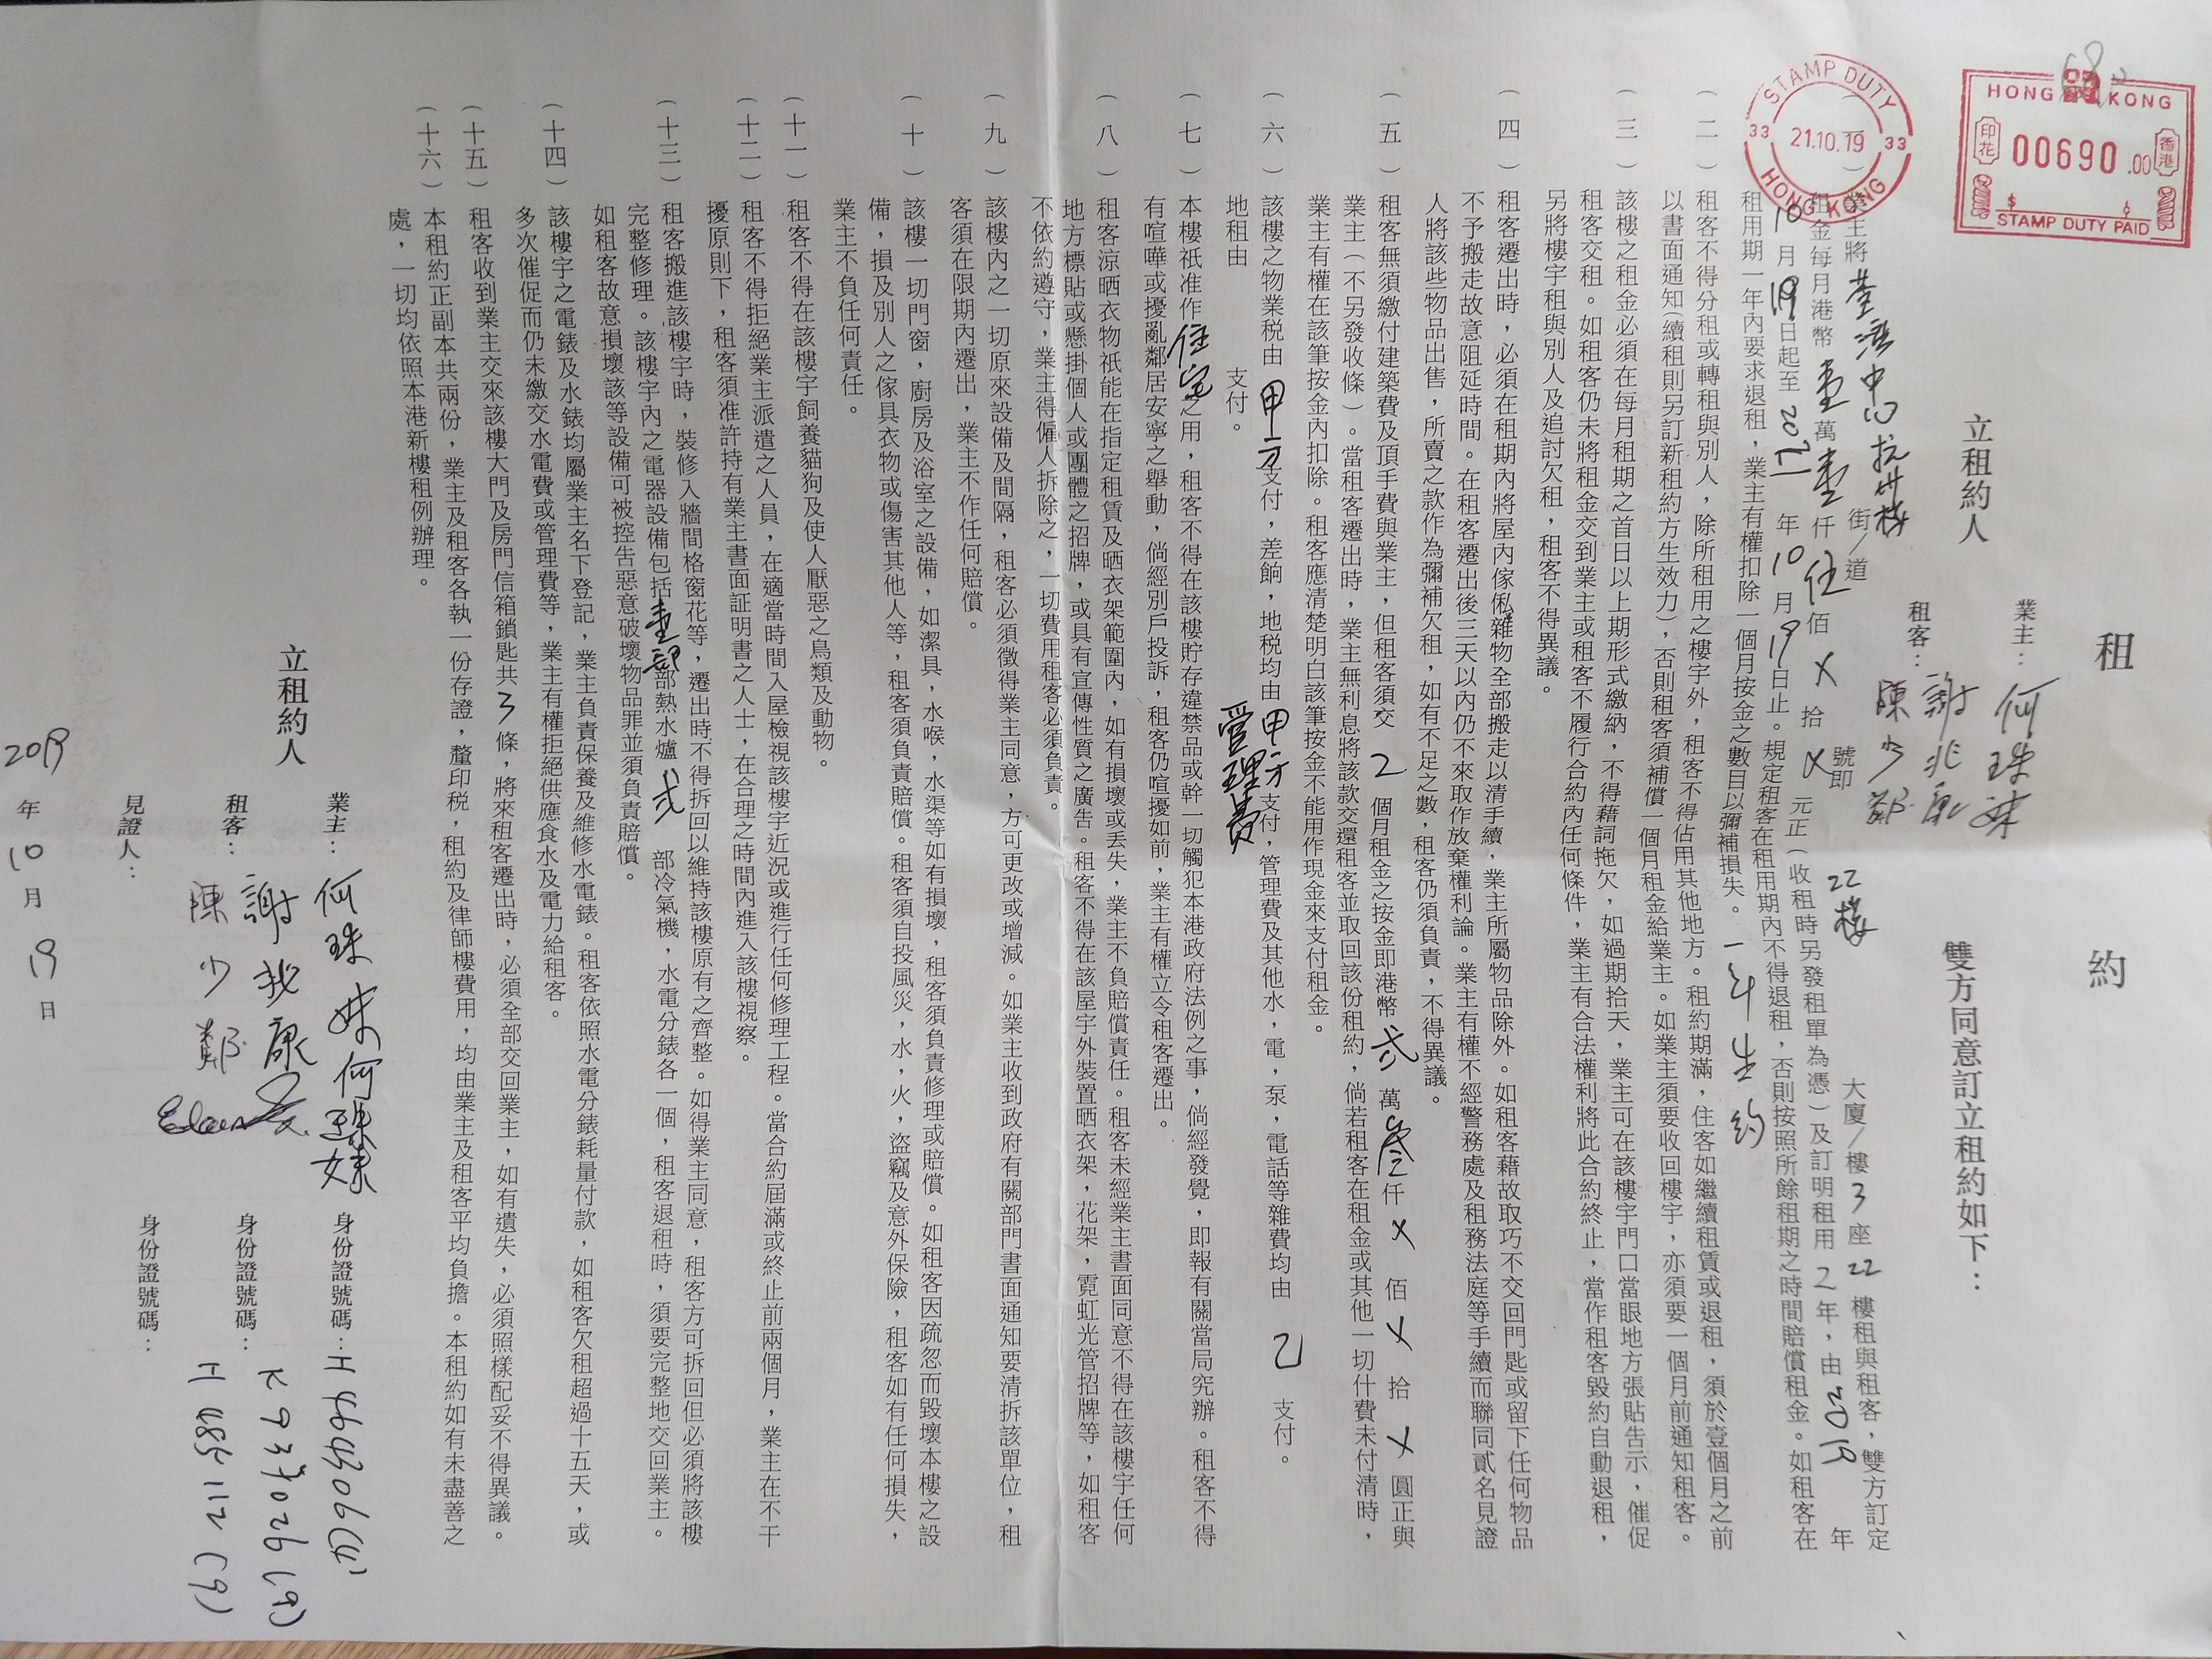 HONG KONG
印花
00690.00
香港
STAMP DUTY PAID
STAMP DUTY
33 21.10.19 33
HONG KONG
租 約
業主：何珠妹
立租約人 雙方同意訂立租約如下：
租客：謝兆康
陳少鄒
業主將荃灣中心杭州樓 街/道 號即 22樓 大廈/樓 3 座 22 樓租與租客，雙方訂定
租金每月港幣壹萬壹仟伍佰X拾X元正（收租時另發租單為憑）及訂明租用2年，由2019年
10月19日起至2021年10月19日止。規定租客在租用期內不得退租，否則按照所餘租期之時間賠償租金。如租客在
租用期一年內要求退租，業主有權扣除一個月按金之數目以彌補損失。一年生約
（二）租客不得分租或轉租與別人，除所租用之樓宇外，租客不得佔用其他地方。租約期滿，住客如繼續租賃或退租，須於壹個月之前
以書面通知（續租則另訂新租約方生效力），否則租客須補償一個月租金給業主。如業主須要收回樓宇，亦須要一個月前通知租客。
（三）該樓之租金必須在每月租期之首日以上期形式繳納，不得藉詞拖欠，如過期拾天，業主可在該樓宇門口當眼地方張貼告示，催促
租客交租。如租客仍未將租金交到業主或租客不履行合約內任何條件，業主有合法權利將此合約終止，當作租客毀約自動退租，
另將樓宇租與別人及追討欠租，租客不得異議。
（四）租客遷出時，必須在租期內將屋內傢俬雜物全部搬走以清手續，業主所屬物品除外。如租客藉故取巧不交回門匙或留下任何物品
不予搬走故意阻延時間。在租客遷出後三天以內仍不來取作放棄權利論。業主有權不經警務處及租務法庭等手續而聯同貳名見證
人將該些物品出售，所賣之款作為彌補欠租，如有不足之數，租客仍須負責，不得異議。
（五）租客無須繳付建築費及頂手費與業主，但租客須交2個月租金之按金即港幣弍萬叁仟X佰X拾X圓正與
業主（不另發收條）。當租客遷出時，業主無利息將該款交還租客並取回該份租約，倘若租客在租金或其他一切什費未付清時，
業主有權在該筆按金內扣除。租客應清楚明白該筆按金不能用作現金來支付租金。
（六）該樓之物業税由甲方支付，差餉，地税均由甲方支付，管理費及其他水，電，泵，電話等雜費均由乙支付。
地租由 支付。 管理費
（七）本樓祇准作住宅之用，租客不得在該樓貯存違禁品或幹一切觸犯本港政府法例之事，倘經發覺，即報有關當局究辦。租客不得
有喧嘩或擾亂鄰居安寧之舉動，倘經別戶投訴，租客仍喧擾如前，業主有權立令租客遷出。
（八）租客涼晒衣物祇能在指定租賃及晒衣架範圍內，如有損壞或丟失，業主不負賠償責任。租客未經業主書面同意不得在該樓宇任何
地方標貼或懸掛個人或團體之招牌，或具有宣傳性質之廣告。租客不得在該屋宇外裝置晒衣架，花架，霓虹光管招牌等，如租客
不依約遵守，業主得僱人拆除之，一切費用租客必須負責。
（九）該樓內之一切原來設備及間隔，租客必須徵得業主同意，方可更改或增減。如業主收到政府有關部門書面通知要清拆該單位，租
客須在限期內遷出，業主不作任何賠償。
（十）該樓一切門窗，廚房及浴室之設備，如潔具，水喉，水渠等如有損壞，租客須負責修理或賠償。如租客因疏忽而毀壞本樓之設
備，損及別人之傢具衣物或傷害其他人等，租客須負責賠償。租客須自投風災，水，火，盜竊及意外保險，租客如有任何損失，
業主不負任何責任。
（十一）租客不得在該樓宇飼養貓狗及使人厭惡之鳥類及動物。
（十二）租客不得拒絕業主派遣之人員，在適當時間入屋檢視該樓宇近況或進行任何修理工程。當合約屆滿或終止前兩個月，業主在不干
擾原則下，租客須准許持有業主書面証明書之人士，在合理之時間內進入該樓視察。
（十三）租客搬進該樓宇時，裝修入牆間格窗花等，遷出時不得拆回以維持該樓原有之齊整。如得業主同意，租客方可拆回但必須將該樓
完整修理。該樓宇內之電器設備包括壹部部熱水爐弍部冷氣機，水電分錶各一個，租客退租時，須要完整地交回業主。
如租客故意損壞該等設備可被控告惡意破壞物品罪並須負責賠償。
（十四）該樓宇之電錶及水錶均屬業主名下登記，業主負責保養及維修水電錶。租客依照水電分錶耗量付款，如租客欠租超過十五天，或
多次催促而仍未繳交水電費或管理費等，業主有權拒絕供應食水及電力給租客。
（十五）租客收到業主交來該樓大門及房門信箱鎖匙共3條，將來租客遷出時，必須全部交回業主，如有遺失，必須照樣配妥不得異議。
（十六）本租約正副本共兩份，業主及租客各執一份存證，釐印税，租約及律師樓費用，均由業主及租客平均負擔。本租約如有未盡善之
處，一切均依照本港新樓租例辦理。
業主：何珠妹 何珠妹 身份證號碼：H464906(4)
立租約人
租客：謝兆康 身份證號碼：K937026(9)
陳少鄒 H485112(9)
見證人： 身份證號碼：
2019年10月19日